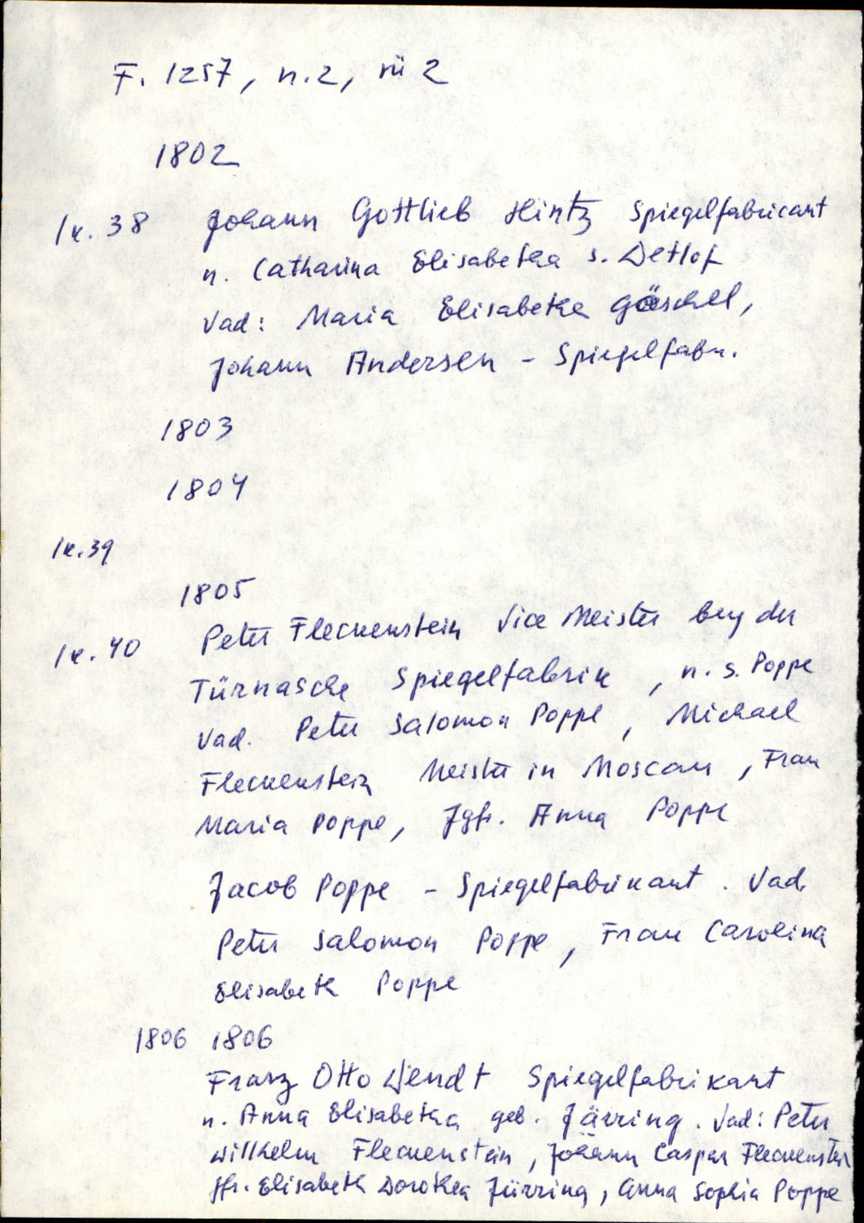 F. 1257, n.2, nü 2
1802
lk. 38 Johann Gottlieb Hintz Spiegelfabricant
n. Catharina Elisabetha s. Detlof
Vad: Maria Elisabethe Göschel,
Johann Andersen - Spiegelfabr.
1803
1804
lk.39
1805
lk. 40 Peter Fleckenstein Vice Meister bey der
Türnasche Spiegelfabrik, n. s. Poppe
Vad. Peter Salomon Poppe, Michael
Fleckenstein Meister in Moscau, Frau
Maria Poppe, Jgfr. Anna Poppe
Jacob Poppe - Spiegelfabrikant. Vad.
Peter Salomon Poppe, Frau Carolina
Elisabeth Poppe
1806 1806
Franz Otto Wendt Spiegelfabrikant
n. Anna Elisabetha geb. Järring. Vad: Peter
Willhelm Fleckenstein, Johann Caspar Fleckenstein
Elisabeth Dorothea Jürring, Anna Sophia Poppe